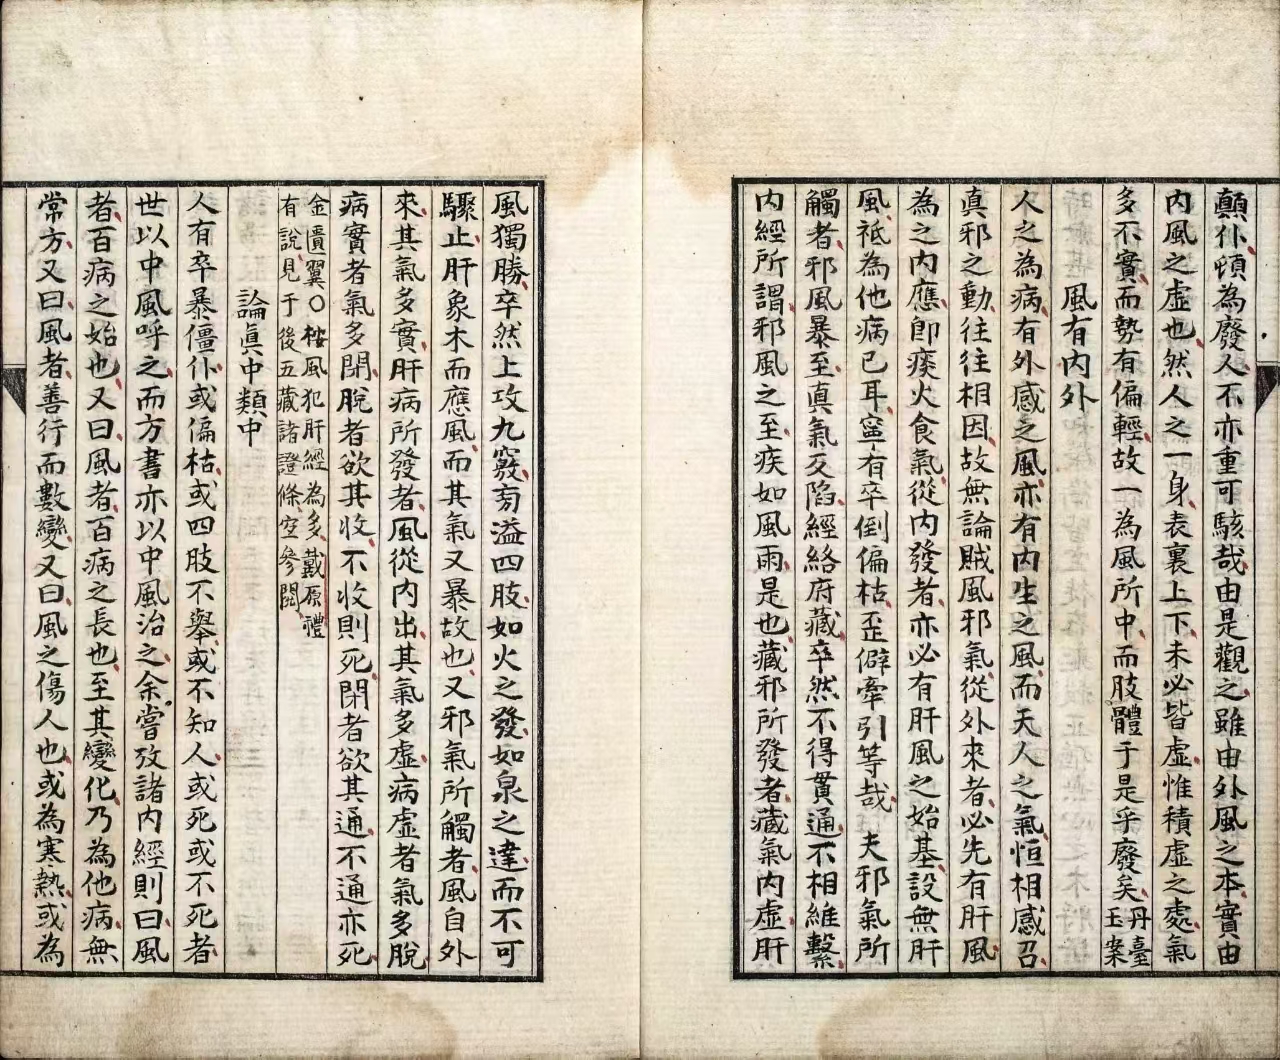 顛仆頓為廢人不亦重可駭哉由是觀之雖由外風之本實由
內風之虛也然人之一身表裏上下未必皆虛惟積虛之處氣
多不實而勢有偏輕故一為風所中而肢體于是乎廢矣丹臺
玉案
風有內外
人之為病有外感之風亦有內生之風而天人之氣恒相感召
真邪之動往往相因故無論賊風邪氣從外來者必先有肝風
為之內應即痰火食氣從內發者亦必有肝風之始基設無肝
風祗為他病已耳寧有卒倒偏枯歪僻牽引等哉 夫邪氣所
觸者邪風暴至真氣反陷經絡府藏卒然不得貫通不相維繫
內經所謂邪風之至疾如風雨是也藏邪所發者藏氣內虛肝
風獨勝卒然上攻九竅旁溢四肢如火之發如泉之達而不可
驟止肝象木而應風而其氣又暴故也又邪氣所觸者風自外
來其氣多實肝病所發者風從內出其氣多虛病虛者氣多脫
病實者氣多閉脫者欲其收不收則死閉者欲其通不通亦死
金匱翼○按風犯肝經為多戴原禮
有說見于後五藏諸證條宜參閱
論真中類中
人有卒暴僵仆或偏枯或四肢不舉或不知人或死或不死者
世以中風呼之而方書亦以中風治之余嘗攷諸內經則曰風
者百病之始也又曰風者百病之長也至其變化乃為他病無
常方又曰風者善行而數變又曰風之傷人也或為寒熱或為